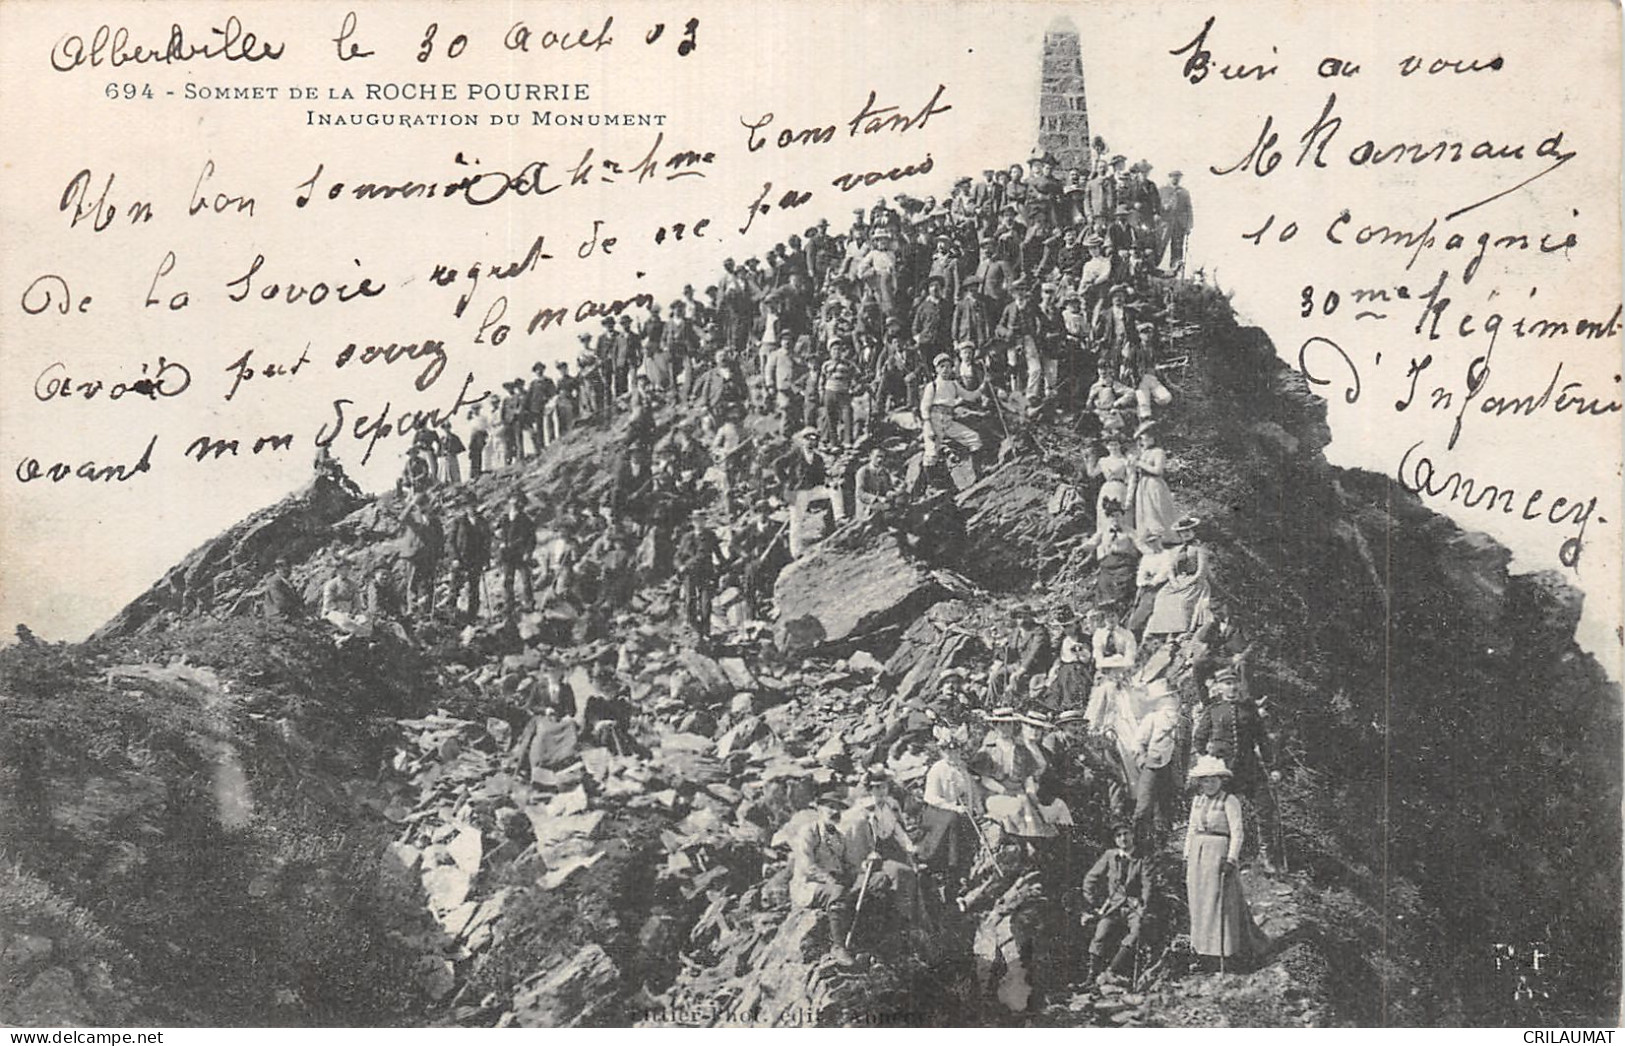 Alberville le 30 Aout 03
694 - SOMMET DE LA ROCHE POURRIE
INAUGURATION DU MONUMENT
Un bon Souvenir A Mr Mme Constant
De la Savoie regret de ne pas vous
avoir put serrez la main
avant mon depart
Bien a vous
M Mannaud
10 Compagnie
30me Régiment
d'Infanterie
Annecy.
Pittier-Phot. édit. Annecy
P. P.
A.
CRILAUMAT